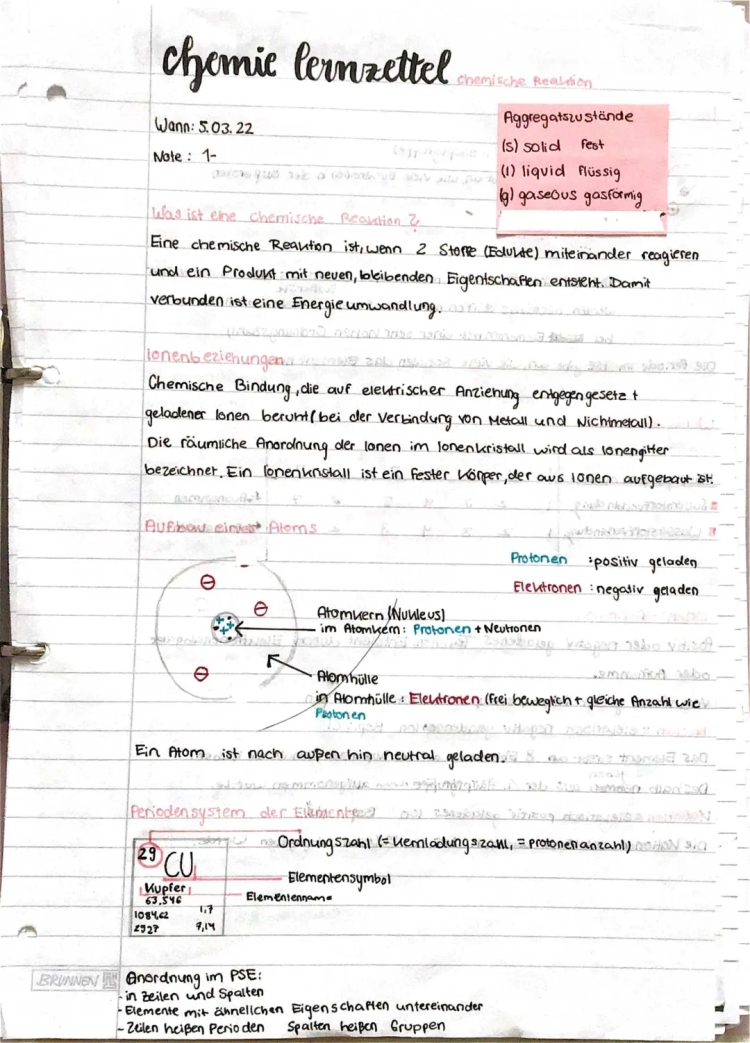 chemie lernzettel chemische Reaktion
Wann: 5.03.22
Note: 1-
Aggregatszustände
(s) solid fest
(l) liquid flüssig
(g) gaseous gasförmig
Was ist eine chemische Reaktion?
Eine chemische Reaktion ist, wenn 2 Stoffe (Edukte) miteinander reagieren
und ein Produkt mit neuen, bleibenden Eigentschaften entsteht. Damit
verbunden ist eine Energieumwandlung.
Ionenbeziehungen
Chemische Bindung, die auf elektrischer Anziehung entgegengesetzt
geladener Ionen beruht (bei der Verbindung von Metall und Nichtmetall).
Die räumliche Anordnung der Ionen im Ionenkristall wird als Ionengitter
bezeichnet. Ein Ionenkristall ist ein fester Körper, der aus Ionen aufgebaut ist.
Aufbau eines Atoms
Protonen : positiv geladen
Elektronen : negativ geladen
Atomkern (Nukleus)
im Atomkern: Protonen + Neutronen
Atomhülle
in Atomhülle: Elektronen (frei beweglich + gleiche Anzahl wie
Protonen
Ein Atom ist nach außen hin neutral geladen.
Periodensystem der Elemente
Ordnungszahl (= Kernladungszahl, = protonenanzahl)
29
CU
Elementensymbol
Kupfer
Elementenname
63,546
1084,62 1,7
2927 9,14
BRUNNEN
Anordnung im PSE:
- in Zeilen und Spalten
- Elemente mit ähnellchen Eigenschaften untereinander
- Zeilen heißen Perioden Spalten heißen Gruppen